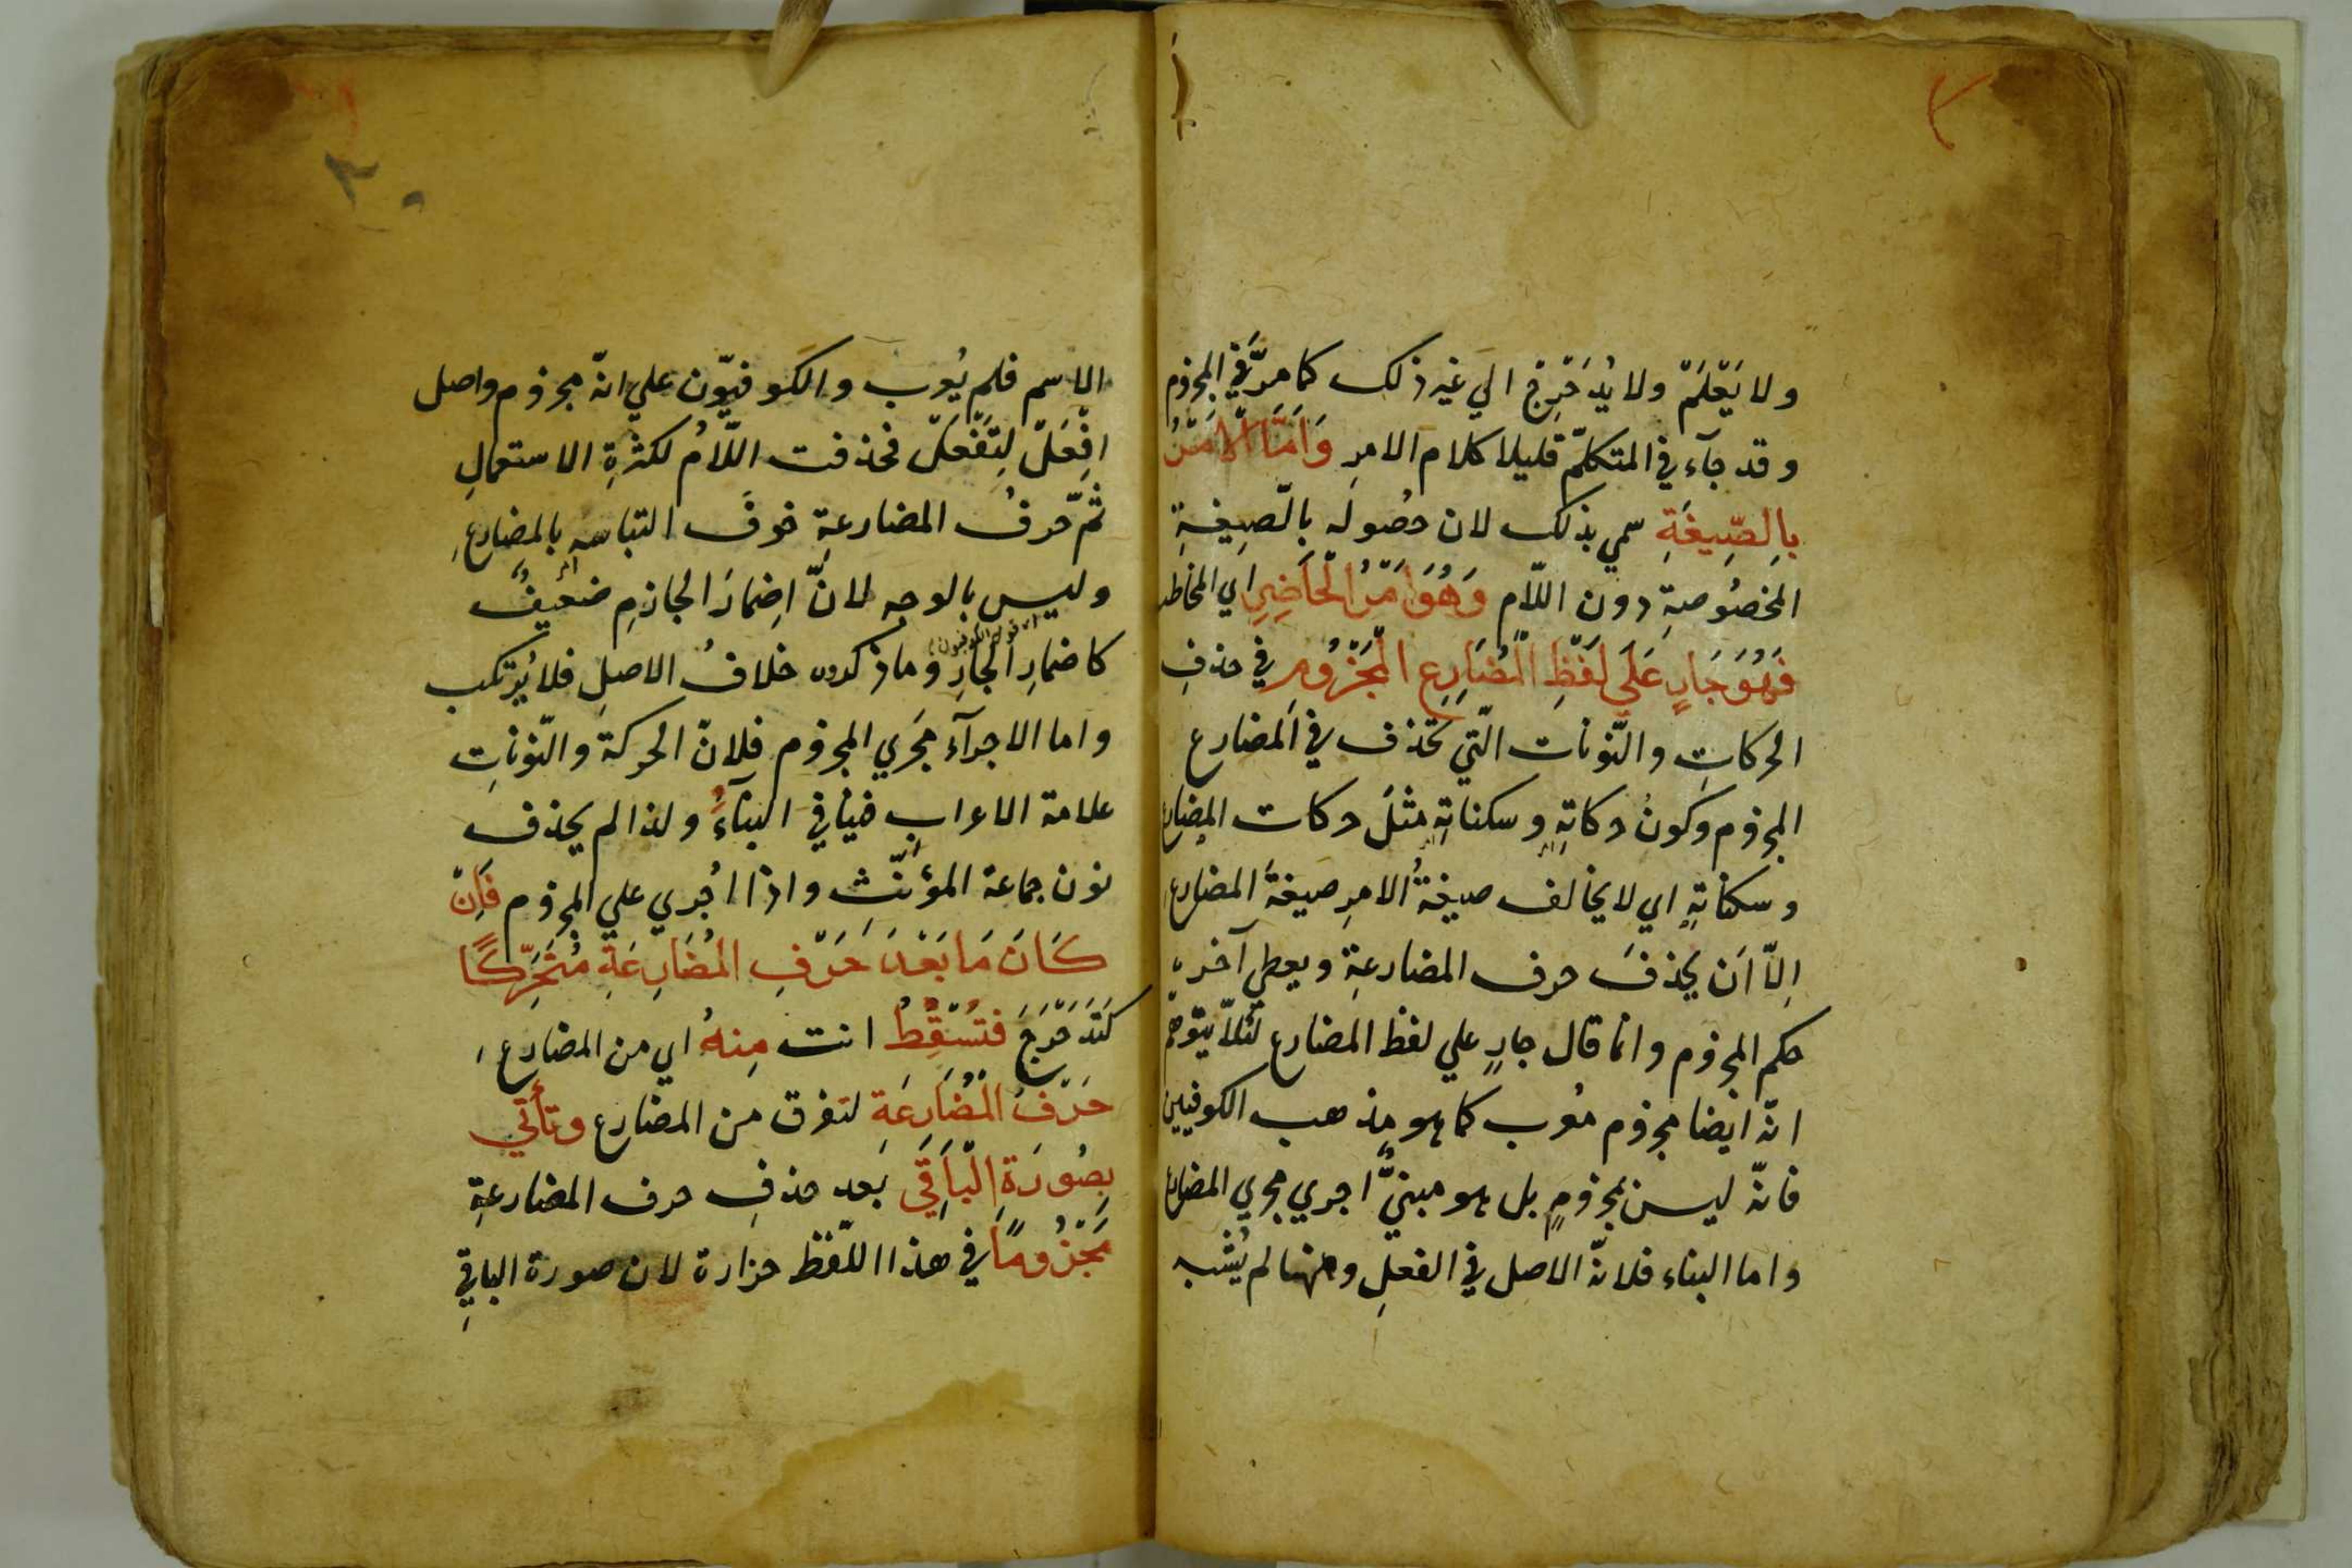 ولا يَعْلَمْ ولا يُدَحْرِجْ الي غير ذلك كما مرّ في المجزوم
وقد جآء في المتكلّم قليلا كلام الامرِ وَاَمَّا الْاَمْرُ
بِالصِّيغَةِ سمي بذلك لان حصُوله بالصّيغةِ
المخصُوصةِ دون اللّامِ وَهُوَ اَمْرُ الْحَاضِرِ اي المخاطب
فَهُوَ جَارٍ عَلَي لَفْظِ الْمُضَارِعِ الْمَجْزُومِ في حذفِ
الحركاتِ والنّونات الّتي تحذف في المضارع
المجزوم وكونُ حركاتِهِ وسكناتِهِ مثلَ حركات المضارع
وسكناتِهِ اي لا يخالف صيغةُ الامرِ صيغةَ المضارعِ
اِلّا اَن يحذفَ حرف المضارعةِ ويعطي آخره
حكم المجزوم وانما قال جارٍ علي لفظ المضارع لئلّا يتوهّم
انّه ايضا مجزوم مُعرب كما هو مذهب الكوفيين
فانّه ليس بمجزومٍ بل هو مبنيٌّ اجري مجري المضارع
واما البناء فلانّه الاصل في الفعلِ وهٰهنا لم يُشْبه
الاسم فلم يُعرب والكوفيّون علي انّه مجزوم واصل
اِفْعَلْ لِتَفْعَلْ فحذفت اللّامُ لكثرةِ الاستعمالِ
ثمّ حرفُ المضارعةِ خوفَ التباسه بالمضارعِ
وليس بالوجه لانّ اِضمارَ الجازمِ ضعيفٌ
كاضمارِ الجارِ وما ذكروه خلافُ الاصلِ فلا يُرتكب
واما الاجرآء مَجري المجزوم فلانّ الحركةَ والنّوناتِ
علامة الاعراب فينافي البنآءَ ولذا لم يحذف
نون جماعة المؤنّثِ واذا اُجري علي المجزوم فَاِنْ
كَانَ مَا بَعْدَ حَرْفِ الْمُضَارِعَةِ مُتَحَرِّكًا
كَتُدَحْرِجُ فَتُسْقِطُ انت مِنهُ اي من المضارع
حَرْفَ الْمُضَارَعَةِ لتفرق من المضارع وتأتي
بِصُورَةِ الْبَاقِي بَعد حذفِ حرف المضارعةِ
مَجْزُومًا في هذا اللّفظ حزازة لان صورة الباقي